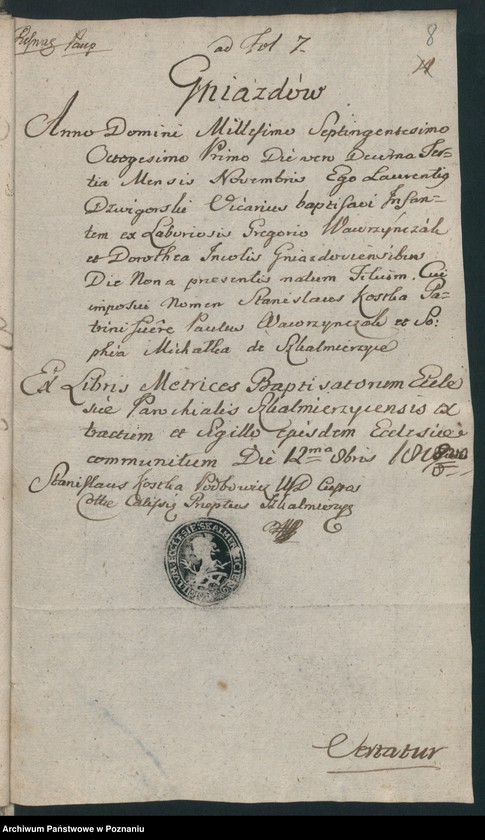 ad Fol 7
8
Gniazdów
Anno Domini Millesimo Septingentesimo
Octogesimo Primo Die vero Decima Ter-
tia Mensis Novembris Ego Laurentiq
Dzwigorski Vicarius baptisavi Infan-
tem ex Laboriosis Gregorio Wawrzynczak
et Dorothea Incolis Gniazdoviensibus
Die Nona praesentis natum Filium. Cui
imposui Nomen Stanislaus Kostka Pa-
trini fuere Paulus Wawrzynczak et So-
phia Michałka de Szkalmierzyce
Ex Libris Metrices Baptisatorum Eccle
siae Parochialis Szkalmierzycensis ex
tractum et Sigillo Ejusdem Ecclesiae
communitum Die 12ma 8bris
Stanislaus Kostka
Collae Calissi Praeptus Szkalmierzyc
Vertatur
Archiwum Państwowe w Poznaniu